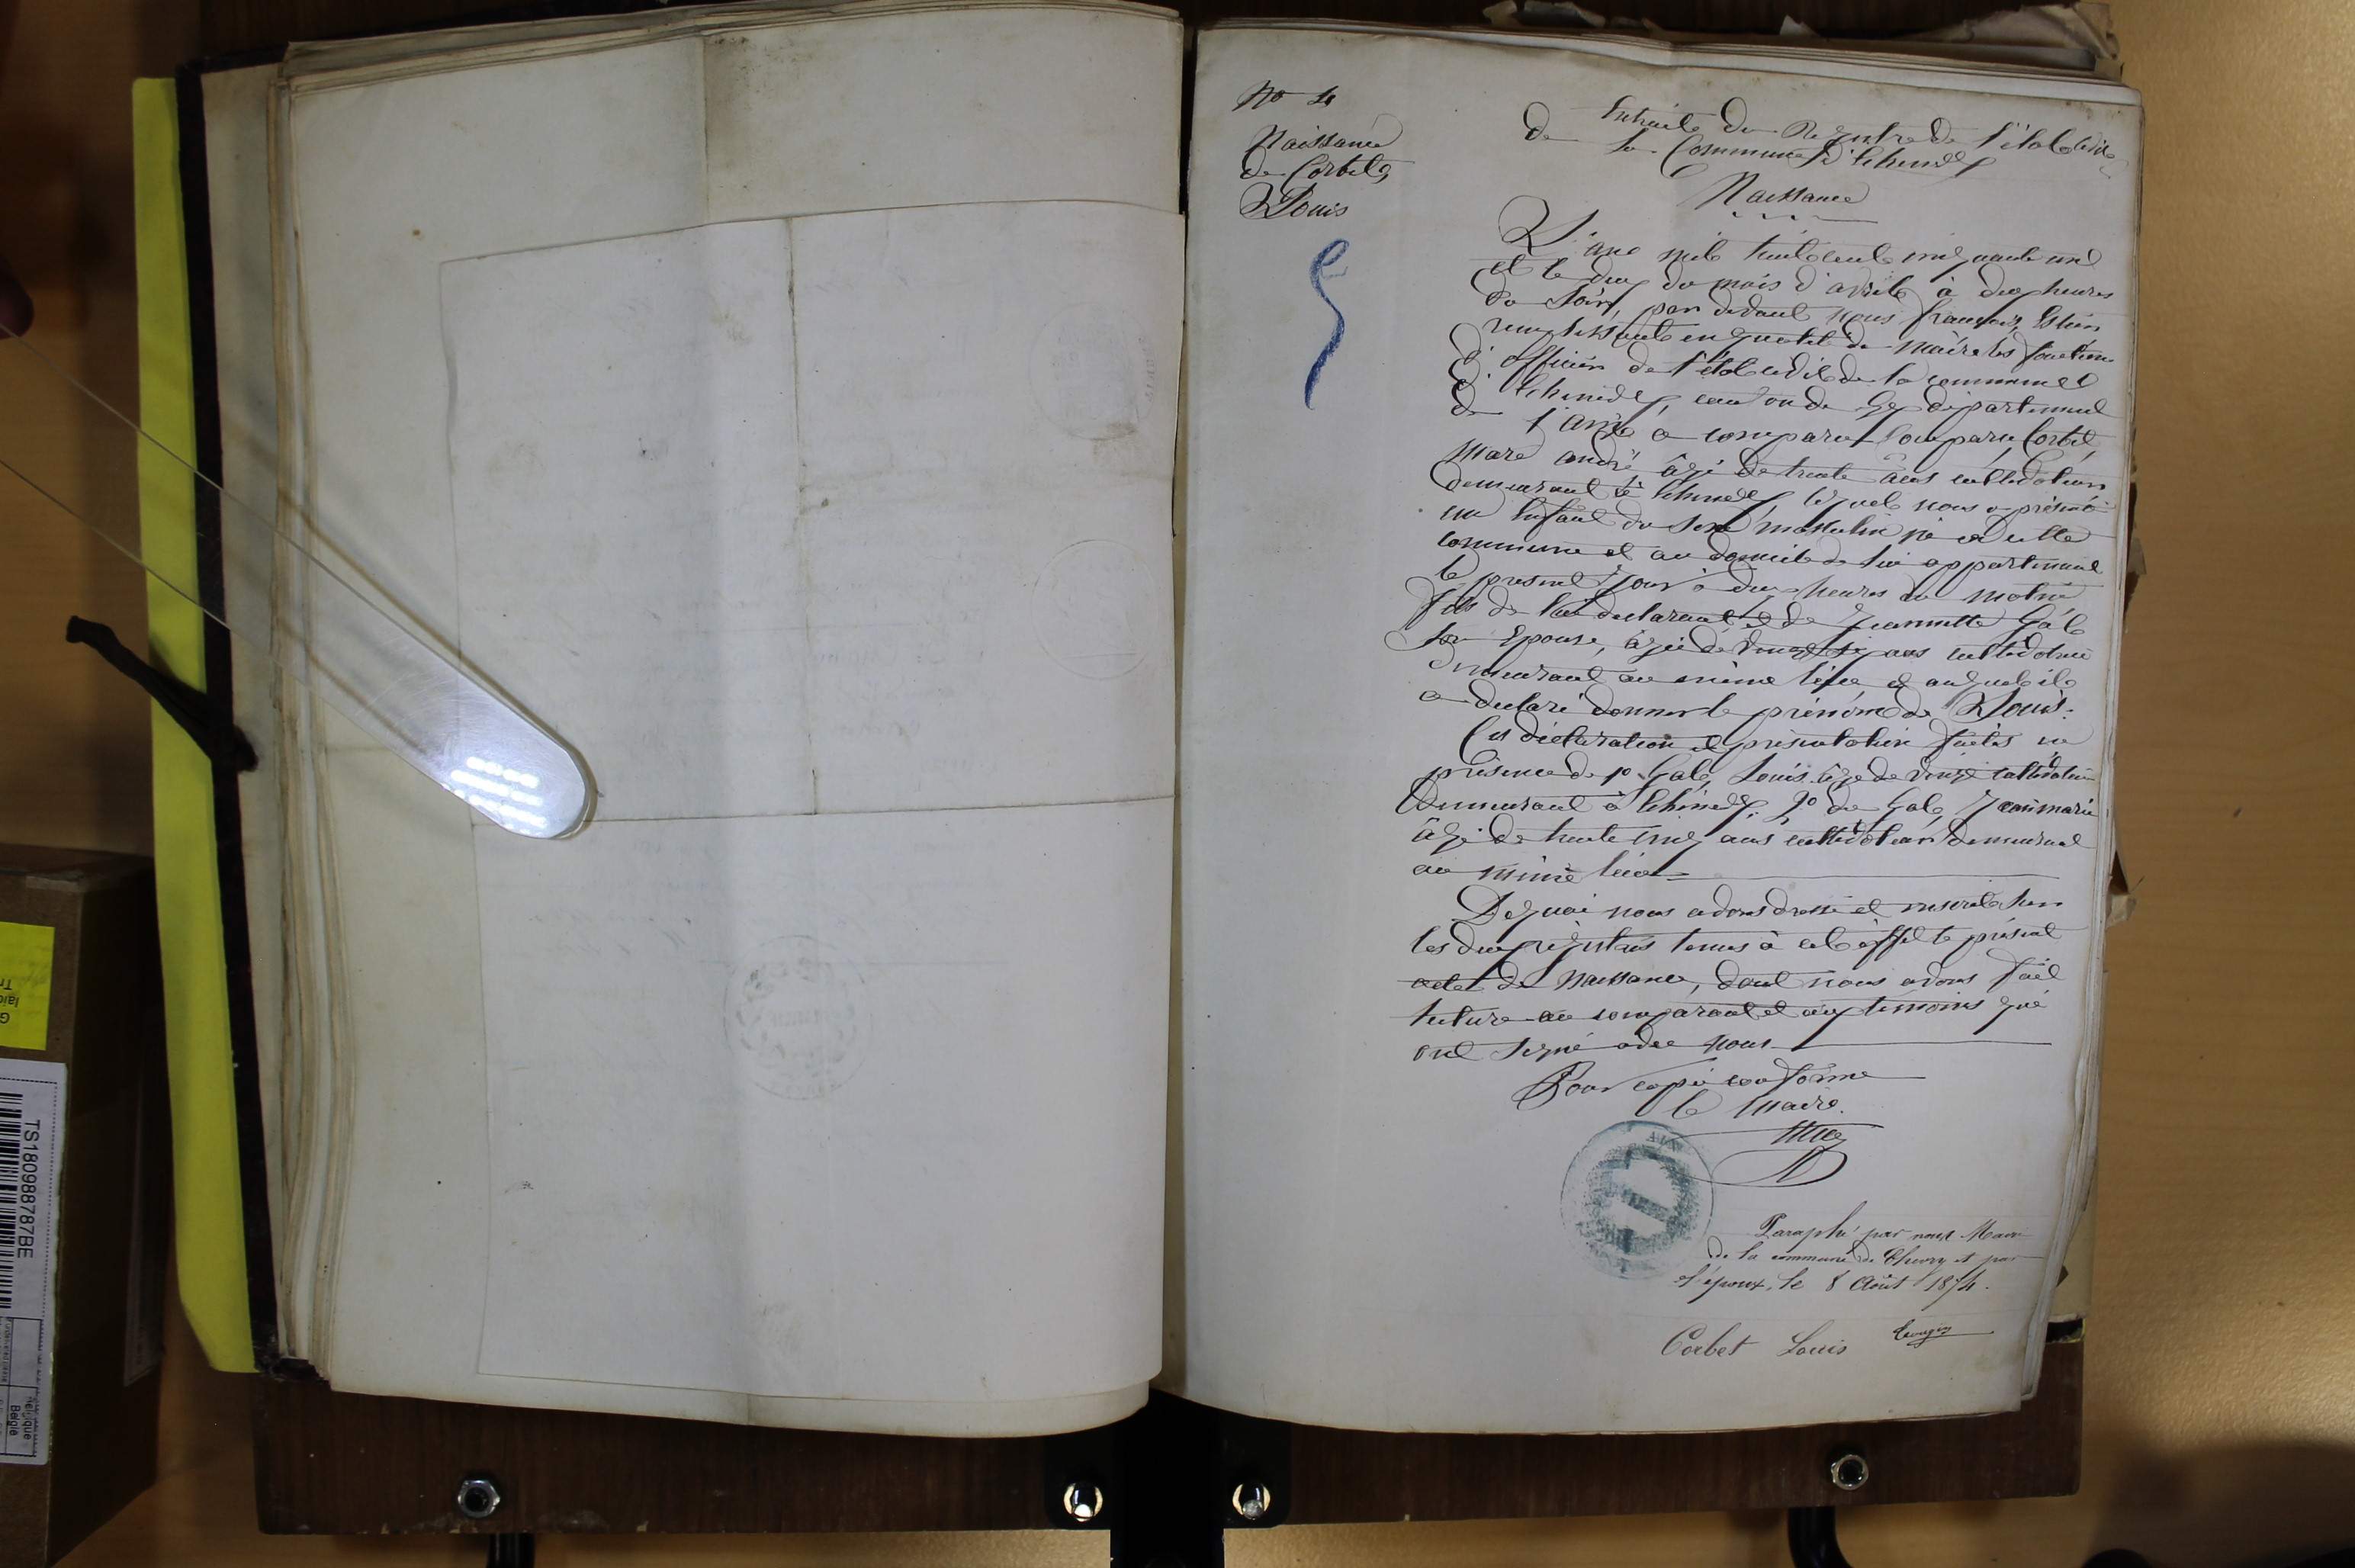 No 4
Naissance
de Corbet
Louis
Extrait du Registre de l'état civil
de la Commune d'Echenevex
Naissance
L'an mil huit cent cinquante un
et le deux du mois d'avril à deux heures
du soir, par devant nous françois Estier
remplissant en qualité de maire les fonctions
d'officier de l'état civil de la commune
d'Echenevex, canton de Gex département
de l'Ain a comparu Corbet
Marc André âgé de trente ans cultivateur
demeurant à Echenevex lequel nous a présenté
un Enfant du sexe masculin né en cette
commune et au domicile de lui appartenant
le present jour à deux heures du matin
fils de lui declarant et de Jeannette Gab
son Epouse, âgée de vingt six ans cultivatrice
demeurant au même lieu et auquel il
a declaré donner le prénom de Louis.
Ces déclaration et présentation faites en
présence de 1o Gab Louis âgé de cultivateur
demeurant à Echenevex, 2o de Gab Jean marie
âgé de trente cinq ans cultivateur demeurant
au même lieu
De quoi nous avons dressé et inscrit sur
les deux régistres tenus à cet éffet le présent
acte de Naissance, dont nous avons fait
lecture au comparant et aux témoins qui
ont signé avec nous
Pour copie conforme
le Maire.
Paraphé par nous Maire
de la commune de Chevry et par
l'époux, le 8 Août 1874.
Corbet Louis
TS180988787BE
Belgique
België